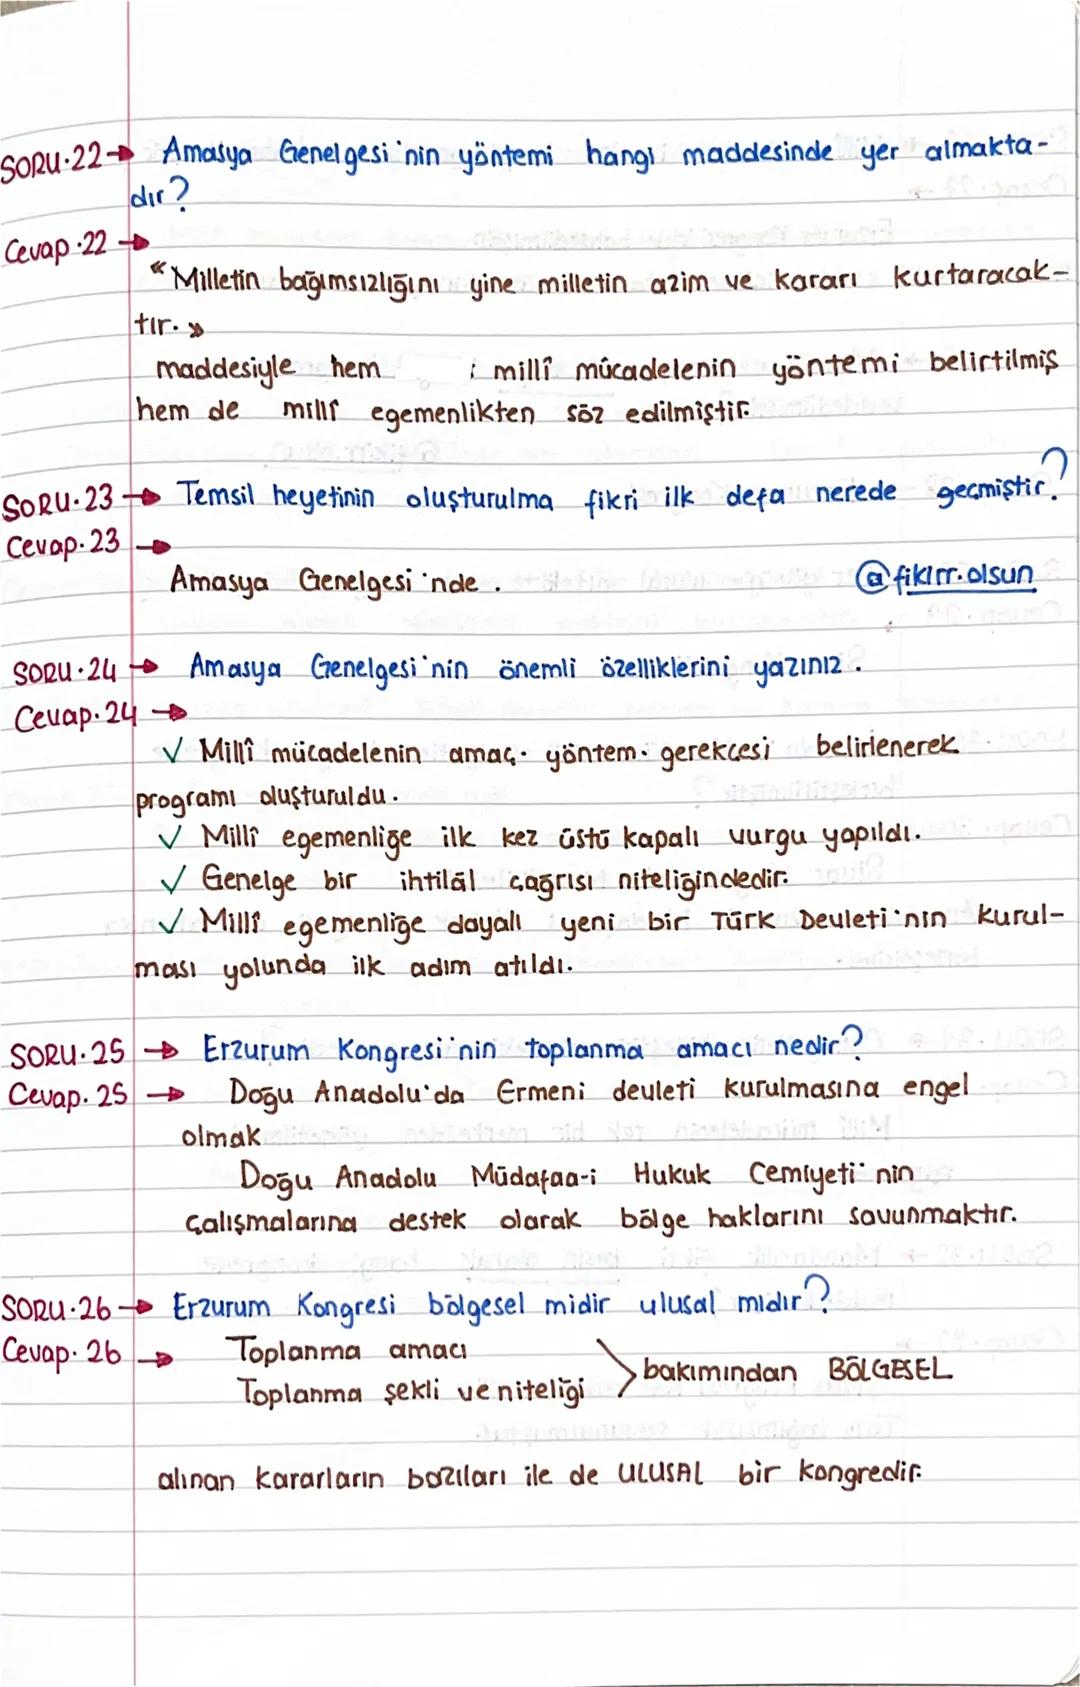 SORU.22→ Amasya Genelgesi'nin yöntemi hangi maddesinde yer almakta-
dır?
Cevap.22→
"Milletin bağımsızlığını yine milletin azim ve kararı kurtaracak-
tır."
maddesiyle hem millî mücadelenin yöntemi belirtilmiş
hem de millî egemenlikten söz edilmiştir.
SORU.23→ Temsil heyetinin oluşturulma fikri ilk defa nerede geçmiştir?
Cevap.23→
Amasya Genelgesi'nde.
@fikirr.olsun
SORU.24→ Amasya Genelgesi'nin önemli özelliklerini yazınız.
Cevap.24→
✓ Millî mücadelenin amaç. yöntem. gerekçesi belirlenerek
programı oluşturuldu.
✓ Millî egemenliğe ilk kez üstü kapalı vurgu yapıldı.
✓ Genelge bir ihtilâl çağrısı niteliğindedir.
✓ Millî egemenliğe dayalı yeni bir Türk Devleti'nin kurul-
ması yolunda ilk adım atıldı.
SORU.25→ Erzurum Kongresi'nin toplanma amacı nedir?
Cevap.25→ Doğu Anadolu'da Ermeni devleti kurulmasına engel
olmak
Doğu Anadolu Müdafaa-i Hukuk Cemiyeti'nin
çalışmalarına destek olarak bölge haklarını savunmaktır.
SORU.26→ Erzurum Kongresi bölgesel midir ulusal mıdır?
Cevap.26→ Toplanma amacı
Toplanma şekli ve niteliği > bakımından BÖLGESEL
alınan kararların bazıları ile de ULUSAL bir kongredir.